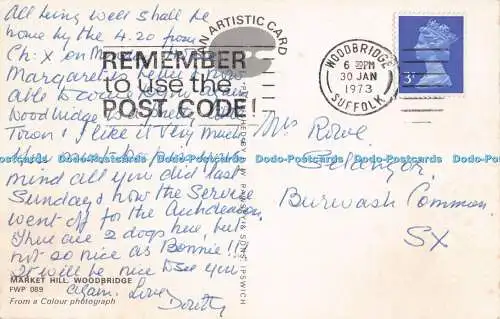 All being well shall be
home by the 4.20 from
Ch: X on
Margaret is
able to
Woodbridge
Town! I like it very much
mind all you did last
Sunday & how the Service
went off for the Archdeacon
There are 2 dogs here, but
not so nice as Bonnie!!!
It will be nice to see you
again. Love
Dorothy
MARKET HILL, WOODBRIDGE
FWP 089
From a Colour photograph
AN ARTISTIC CARD
IPSWICH
REMEMBER
to use the
POST CODE!
WOODBRIDGE
6 PM
30 JAN
1973
SUFFOLK
3P
Mrs Rowe
Selangor
Burwash Common
SX
Do-Postcards Do-Postcards Do-Postcards Do-Postcards Do-Postcards Do-Postcards